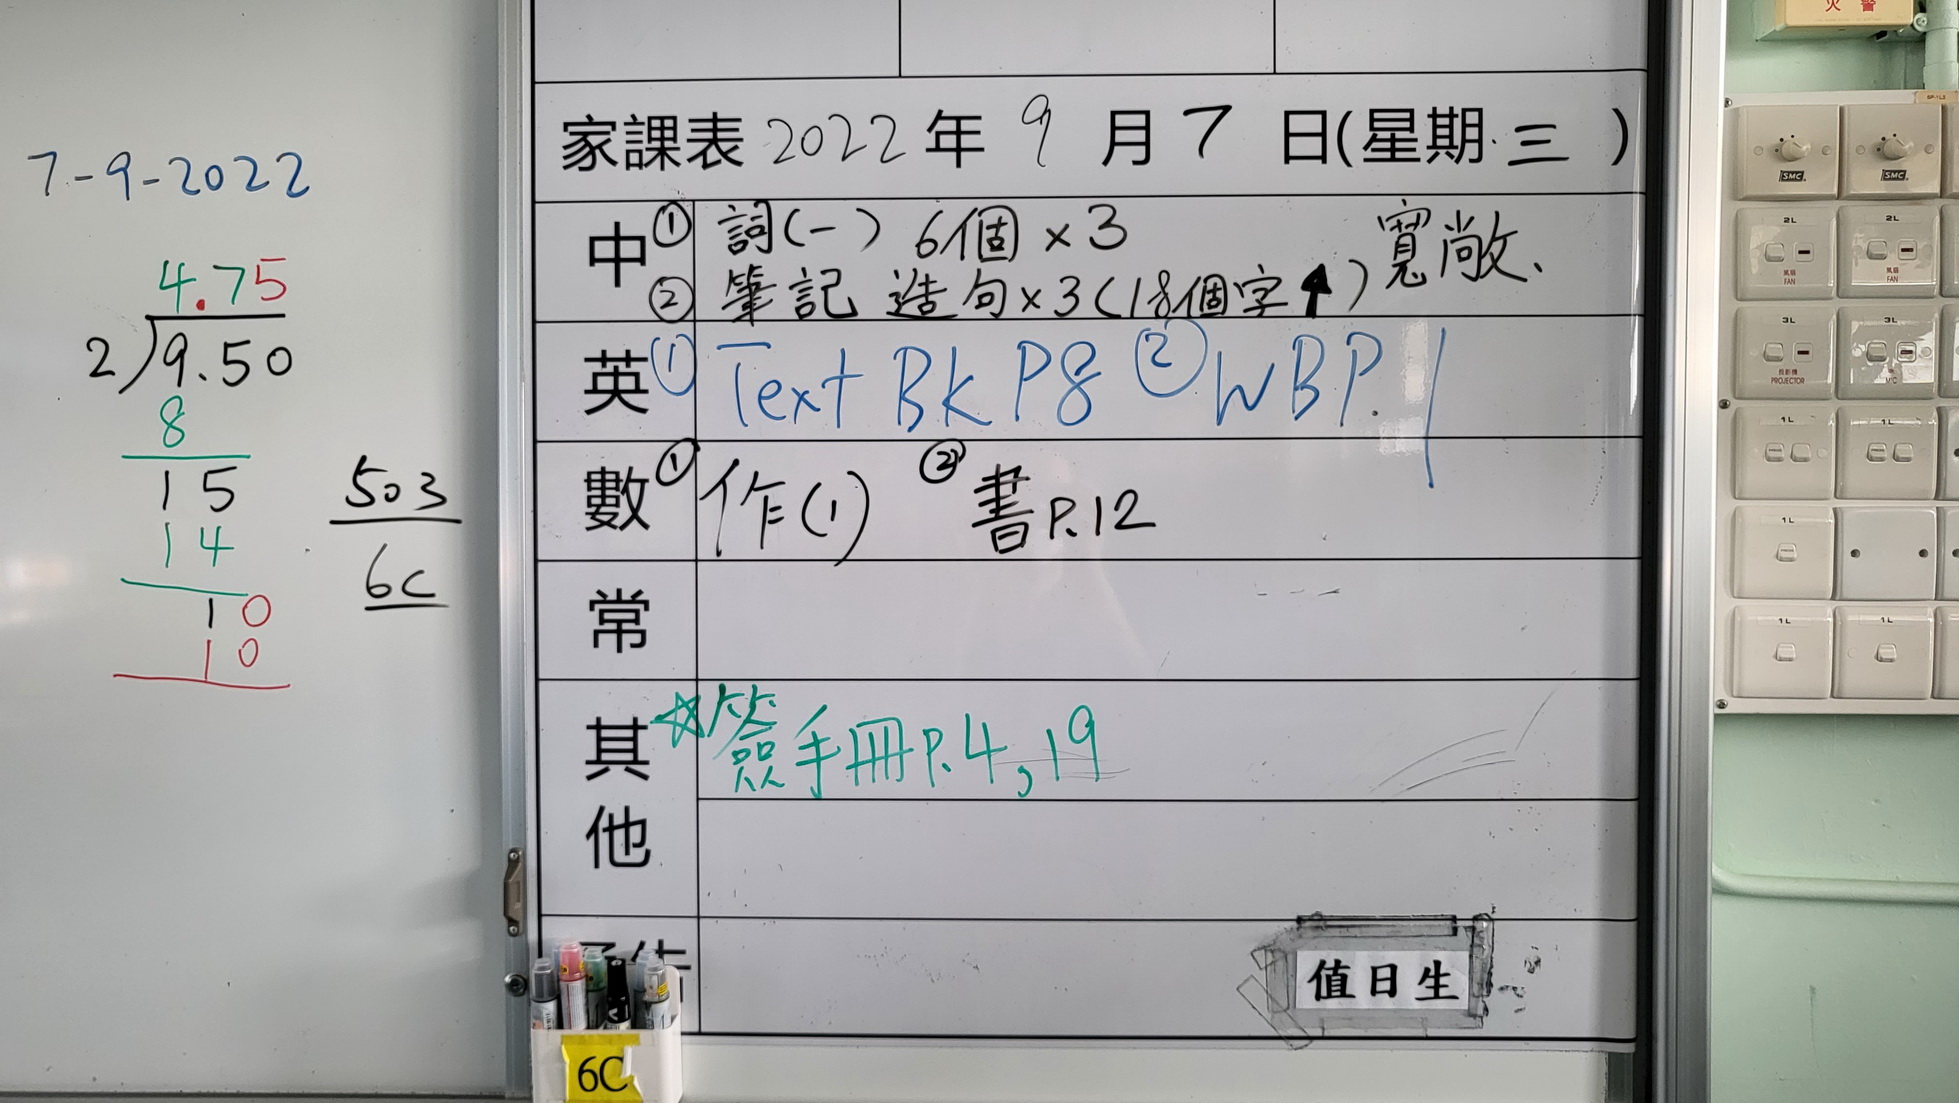 7-9-2022
4.75
2)9.50
8
15
14
10
10
503
6C
家課表 2022 年 9 月 7 日(星期 三 )
中 ① 詞(一) 6個 × 3
② 筆記 造句×3(18個字↑) 寬敞、
英 ① Text Bk P8 ② WBP.1
數 ① 作(1) ② 書P.12
常
其他 ☆簽手冊P.4,19
值日生
6C
火警
SMC
SMC
2L
2L
風扇
FAN
風扇
FAN
3L
3L
投影機
PROJECTOR
MIC
1L
1L
1L
1L
1L